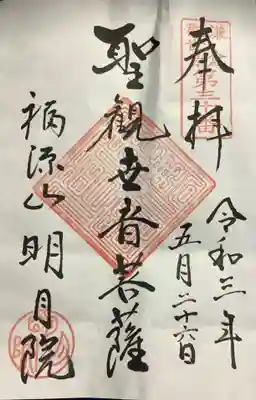 奉拝
第三十番
令和三年
五月二十六日
聖觀世音菩薩
福源山 明月院